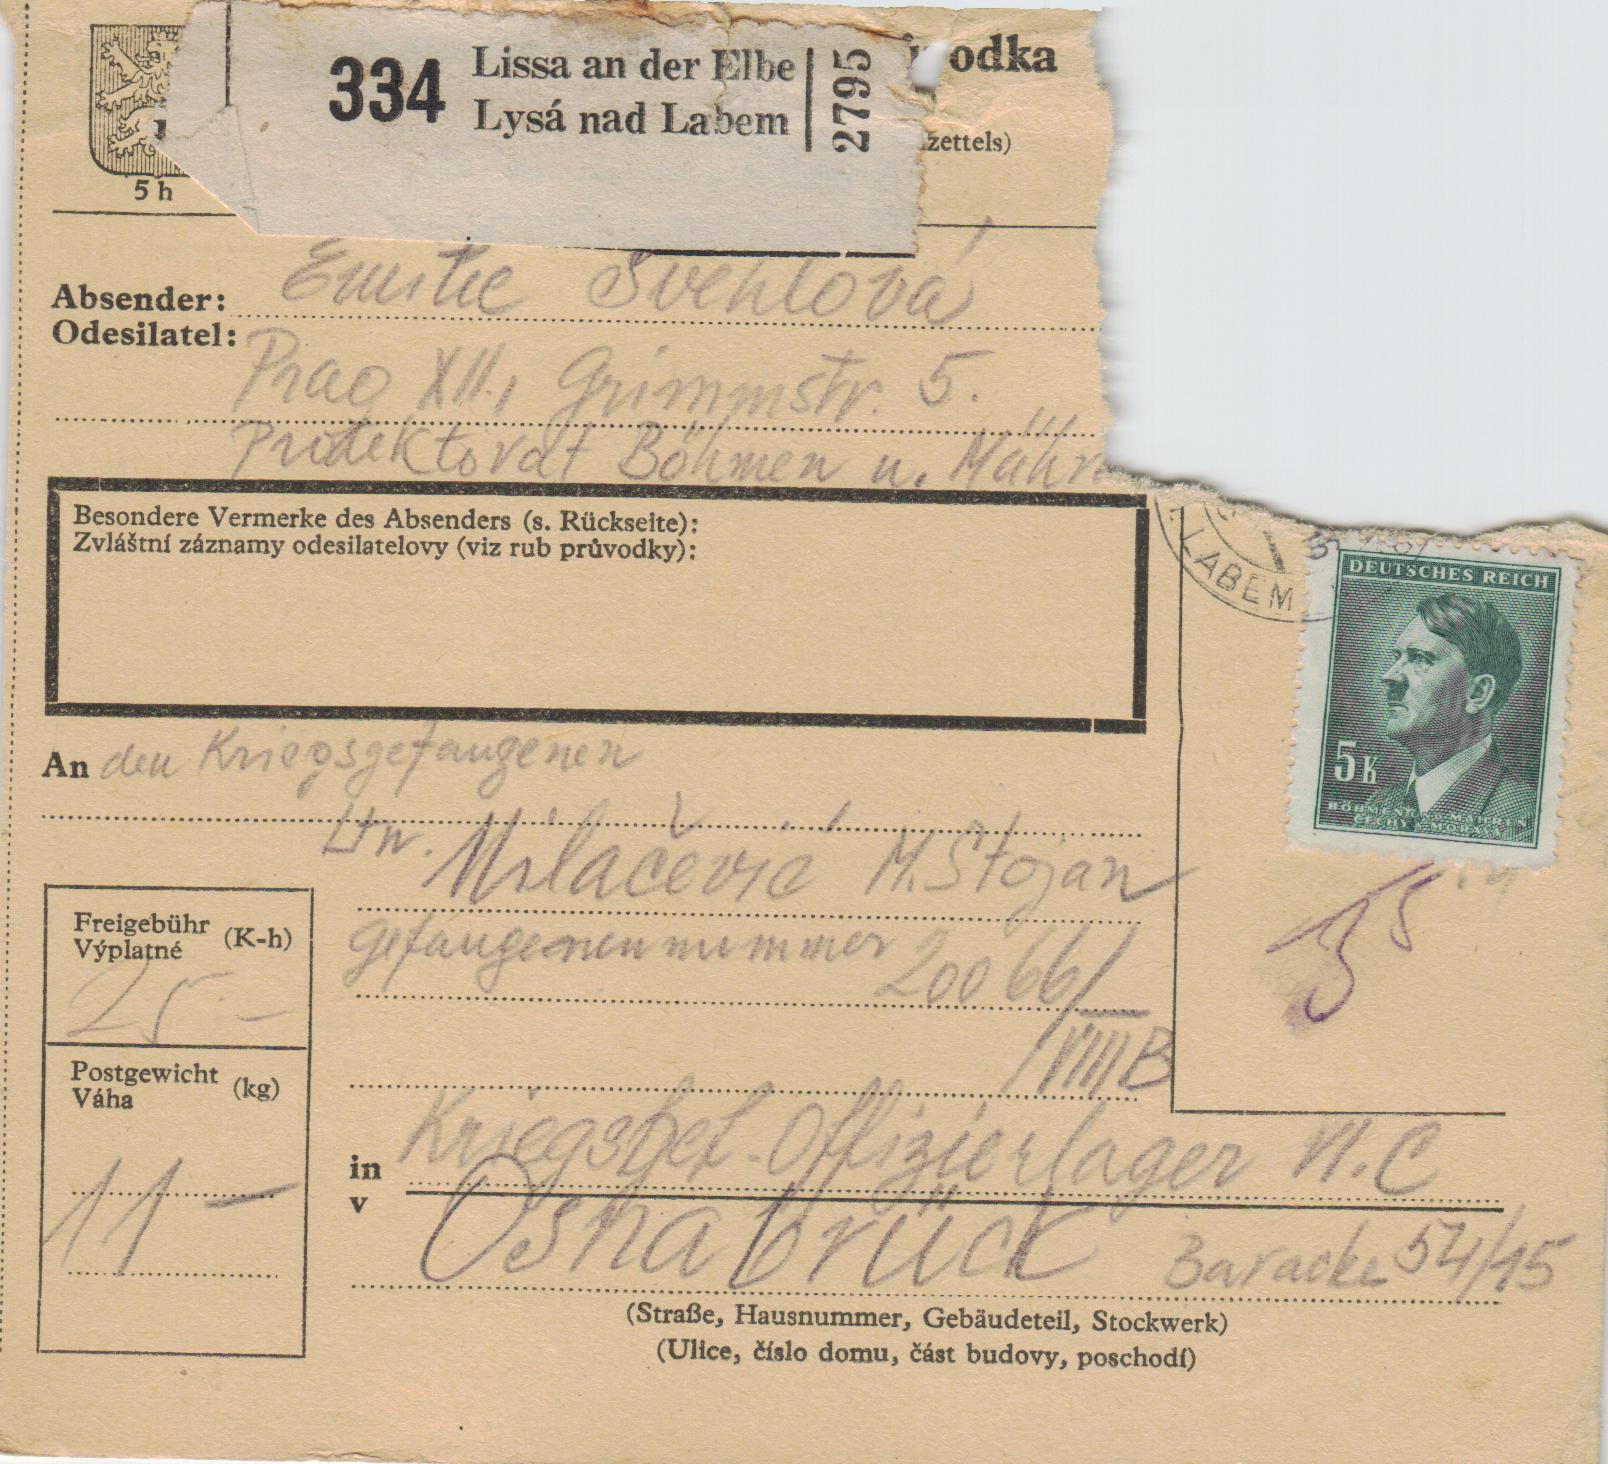 334 Lissa an der Elbe
Lysá nad Labem
2795
odka
zettels)
5 h
Absender: Emilie Švehlová
Odesilatel:
Prag XII., Grimmstr. 5.
Protektorat Böhmen u. Mähr
Besondere Vermerke des Absenders (s. Rückseite):
Zvláštní záznamy odesilatelovy (viz rub průvodky):
LABEM
DEUTSCHES REICH
5 K
BÖHMEN UND MÄHREN
ČECHY A MORAVA
An den Kriegsgefangenen
Ltn. Milačević M. Stojan
Gefangenennummer 20066/
/VIII B
35
Freigebühr (K-h)
Výplatné
25 -
Postgewicht (kg)
Váha
11 -
in Kriegsgef. Offizierlager VI. C
v
Osnabrück Baracke 54/15
(Straße, Hausnummer, Gebäudeteil, Stockwerk)
(Ulice, číslo domu, část budovy, poschodí)